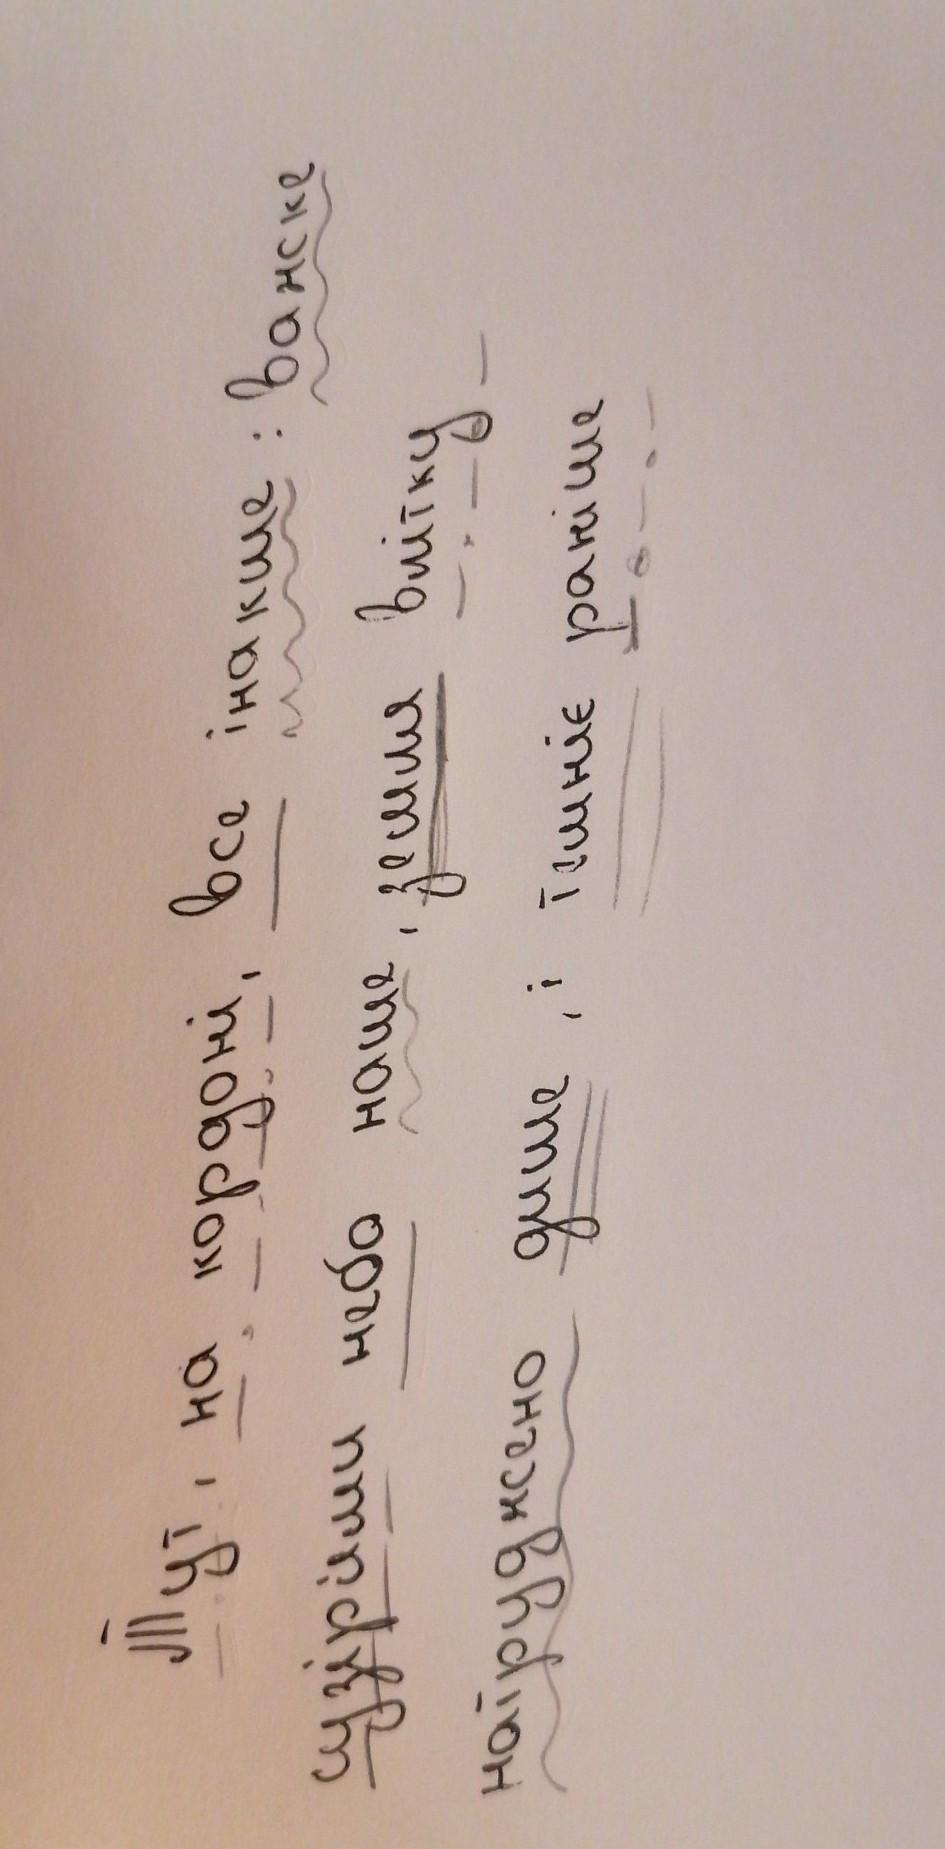 Тут, на кордоні, все інакше: важке
сузірями небо наше, земля влітку
натруджено дише, і темніє раніше